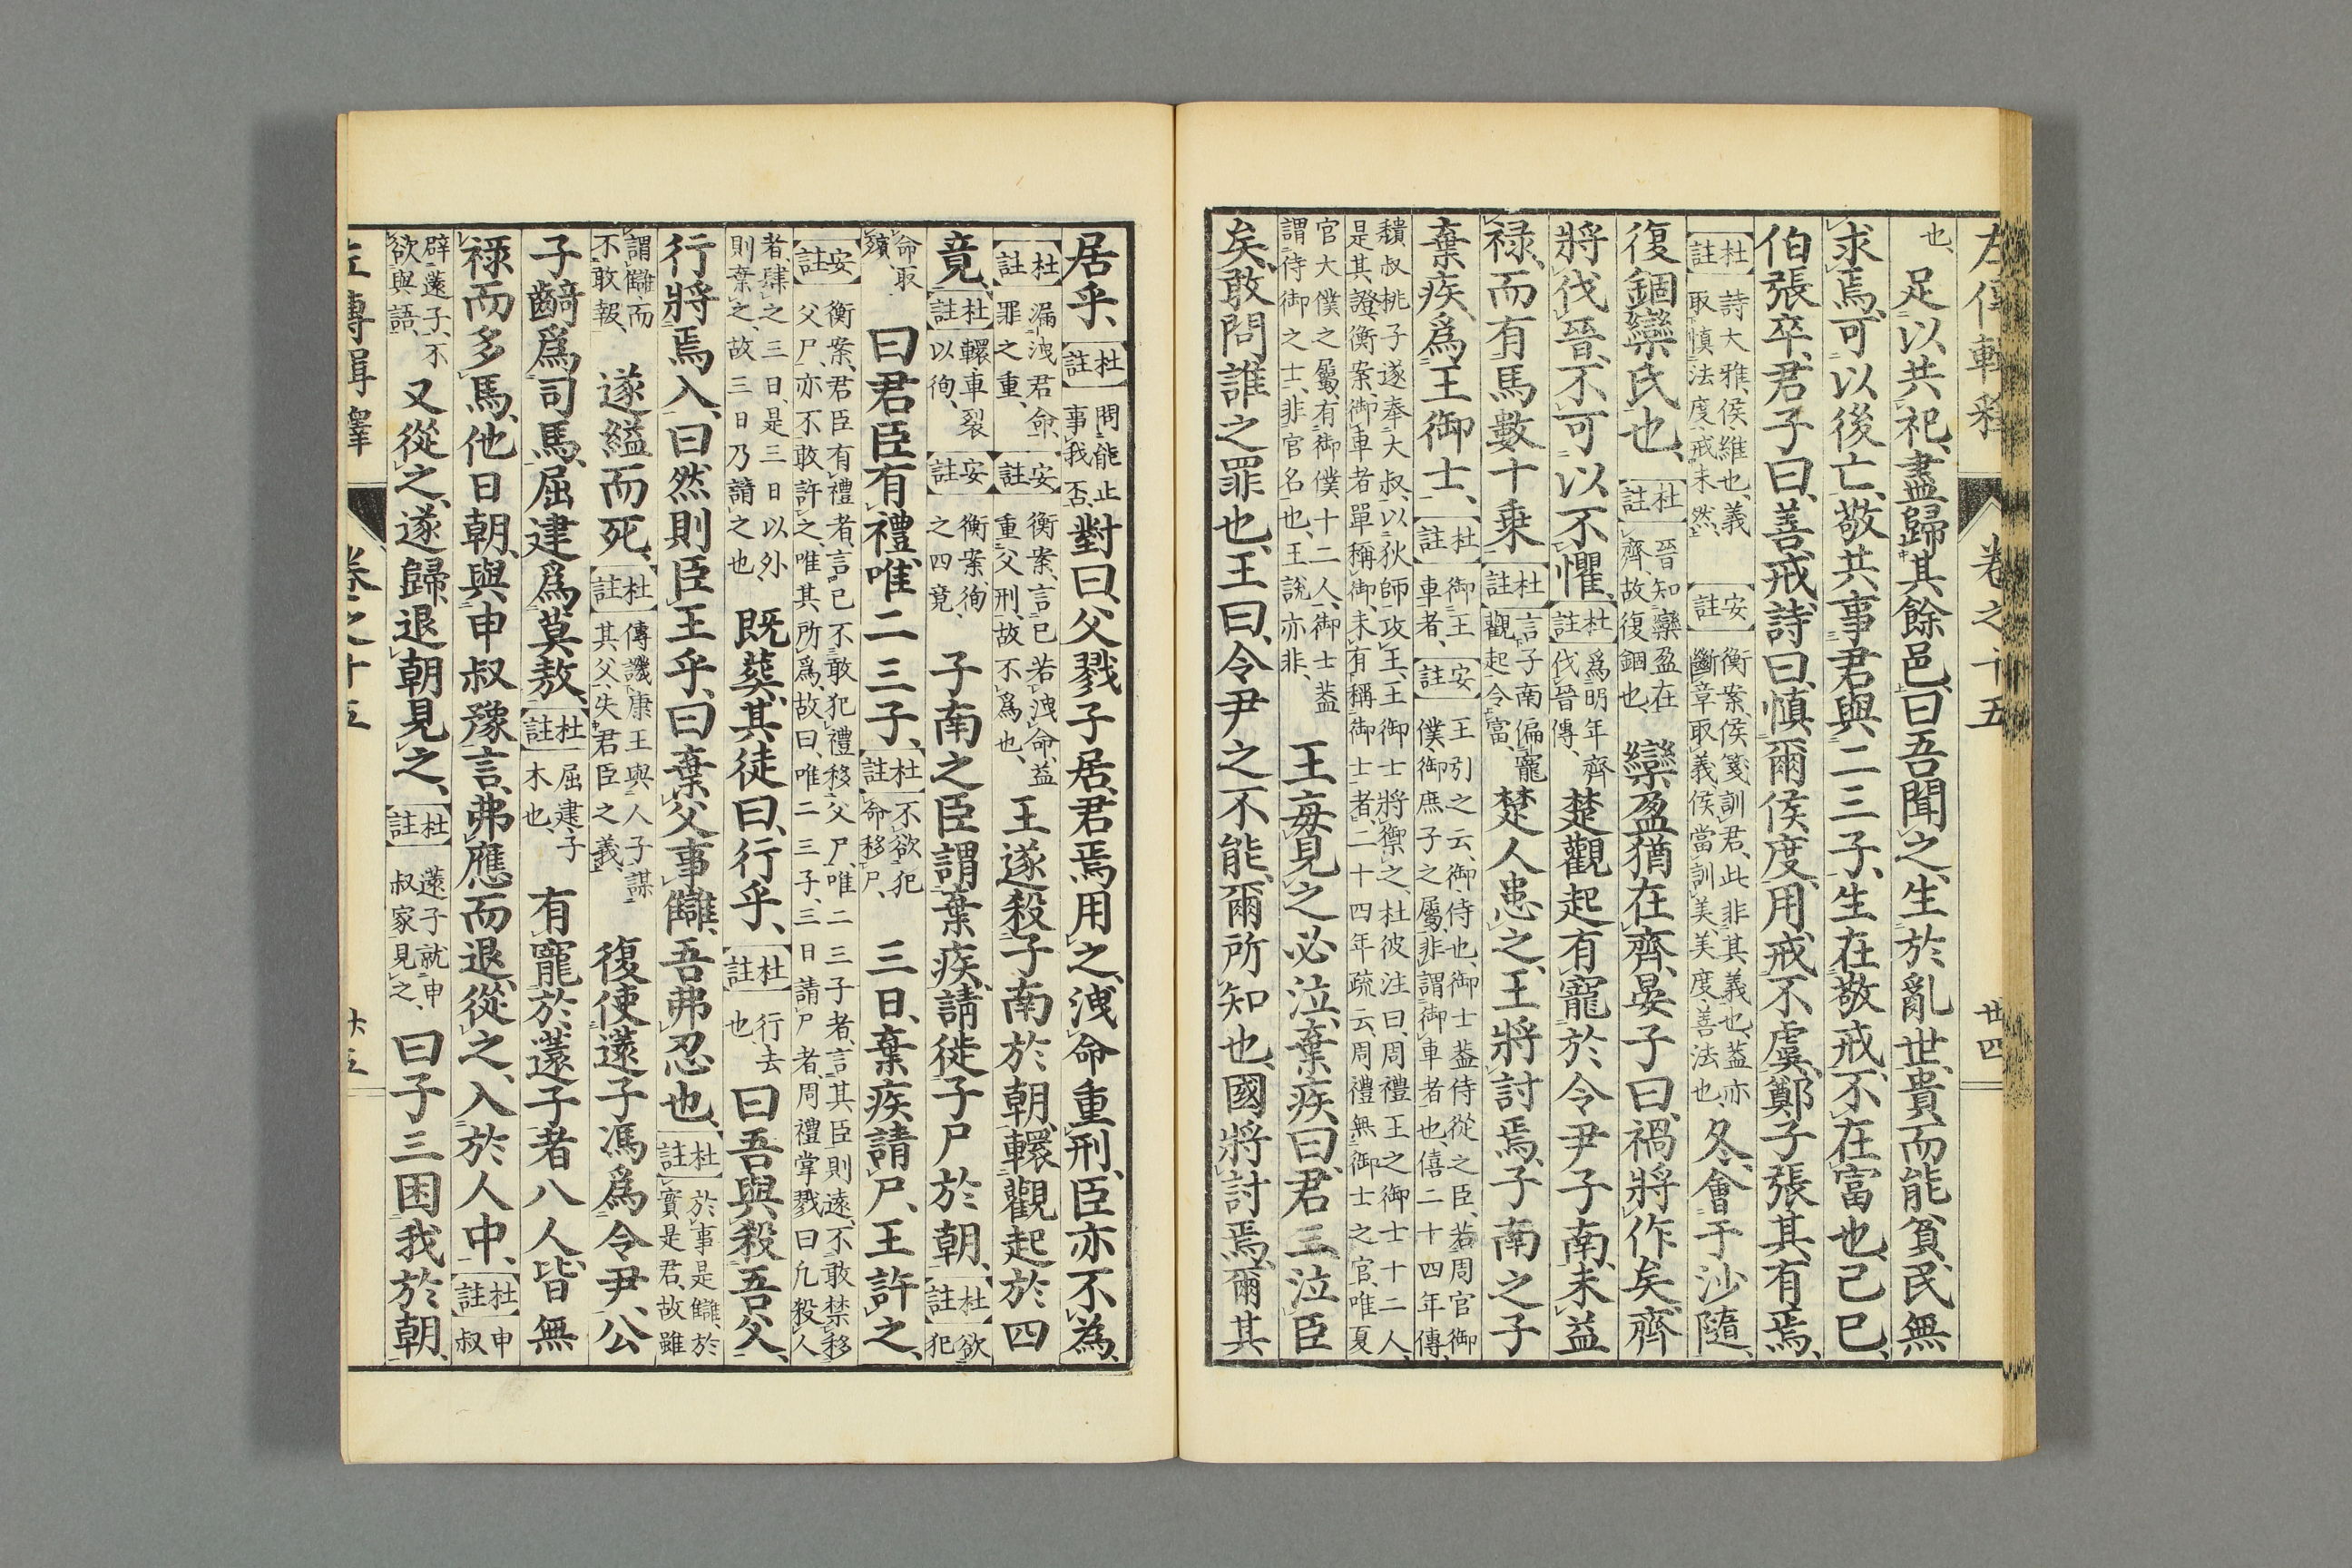 左傳輯釋 卷之十五 廿四
也、足以共祀、盡歸其餘邑、曰、吾聞之、生於亂世、貴而能貧、民無
求焉、可以後亡、敬共事君、與二三子、生在敬戒、不在富也、己巳、
伯張卒、君子曰、善戒、詩曰、愼爾侯度、用戒不虞、鄭子張其有焉、
【杜註】詩大雅、侯維也、義取愼法度、戒未然、【安註】衡案、侯箋訓君、此非其義也、蓋亦斷章取義、侯當訓美、美度、善法也、冬、會于沙隨、
復錮欒氏也、【杜註】晉知欒盈在齊、故復錮也、欒盈猶在齊、晏子曰、禍將作矣、齊
將伐晉、不可以不懼、【杜註】爲明年齊伐晉傳、楚觀起有寵於令尹子南、未益
祿、而有馬數十乘、【杜註】言子南偏寵觀起令富、楚人患之、王將討焉、子南之子
棄疾、爲王御士、【杜註】御王車者、【安註】王引之云、御侍也、御士蓋侍從之臣、若周官御僕、御庶子之屬、非謂御車者也、僖二十四年傳、
穨叔桃子遂奉大叔、以狄師攻王、王御士將禦之、杜彼注曰、周禮王之御士十二人、是其證、衡案、御車者單稱御、未有稱御士者、二十四年疏云、周禮無御士之官、唯夏
官大僕之屬、有御僕、十二人、御士蓋謂侍御之士、非官名也、王説亦非、王毎見之必泣、棄疾曰、君三泣臣
矣、敢問、誰之罪也、王曰、令尹之不能、爾所知也、國將討焉、爾其
居乎、【杜註】問能止事我否、對曰、父戮子居、君焉用之、洩命重刑、臣亦不爲、
【杜註】漏洩君命、罪之重、【安註】衡案、言己若洩命、益重父刑、故不爲也、王遂殺子南於朝、轘觀起於四
竟、【杜註】轘車裂以徇、【安註】衡案、徇之四竟、子南之臣謂棄疾、請徙子尸於朝、【杜註】欲犯
命取殯、曰君臣有禮、唯二三子、【杜註】不欲犯命移尸、三日、棄疾請尸、王許之、
【安註】衡案、君臣有禮者、言己不敢犯禮移父尸、唯二三子者、言其臣則遠、不敢禁移父尸、亦不敢許之、唯其所爲、故曰、唯二三子、三日請尸者、周禮掌戮曰、凡殺人
者、肆之三日、是三日以外、則棄之、故三日乃請之也、既葬、其徒曰、行乎、【杜註】行去也、曰吾與殺吾父、
行將焉入、曰然則臣王乎、曰棄父事讎、吾弗忍也、【杜註】於事是讎、於實是君、故雖
謂讎而不敢報、遂縊而死、【杜註】傳譏康王與人子謀其父、失君臣之義、復使薳子馮爲令尹、公
子齮爲司馬、屈建爲莫敖、【杜註】屈建、子木也、有寵於薳子者八人、皆無
祿而多馬、他日朝、與申叔豫言、弗應而退、從之、入於人中、【杜註】申叔
辟薳子、不欲與語、又從之、遂歸、退朝見之、【杜註】薳子就申叔家見之、曰子三困我於朝、
左傳輯釋 卷之十五 廿五